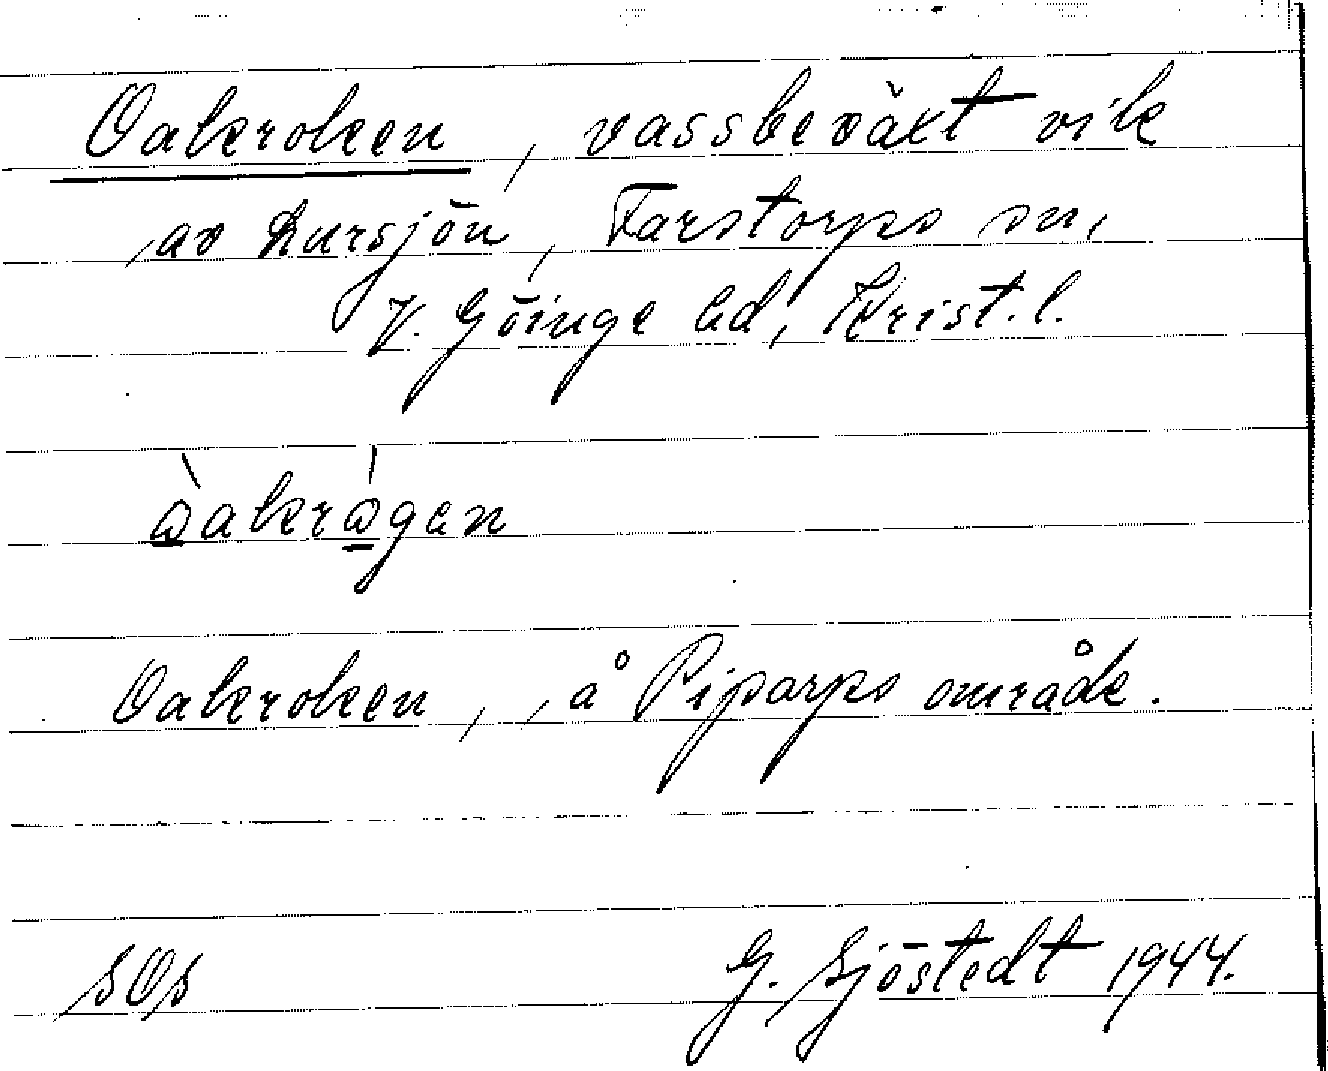 Oakroken, vassbeväxt vik
av Lursjön, Farstorps sn,
V. Göinge hd, Krist.l.
òakrógen
Oakroken, , å Piparps område.
sOs G. Sjöstedt 1944.